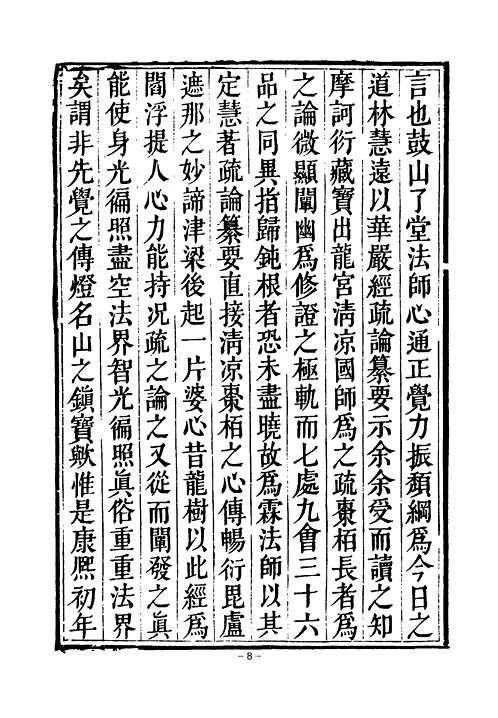 言也鼓山了堂法師心通正覺力振頹綱爲今日之
道林慧遠以華嚴經疏論纂要示余余受而讀之知
摩訶衍藏寶出龍宮淸凉國師爲之疏棗柏長者爲
之論微顯闡幽爲修證之極軌而七處九會三十六
品之同異指歸鈍根者恐未盡曉故爲霖法師以其
定慧著疏論纂要直接淸凉棗柏之心傳暢衍毘盧
遮那之妙諦津梁後起一片婆心昔龍樹以此經爲
閻浮提人心力能持况疏之論之又從而闡發之眞
能使身光徧照盡空法界智光徧照眞俗重重法界
矣謂非先覺之傳燈名山之鎭寶歟惟是康熙初年
- 8 -